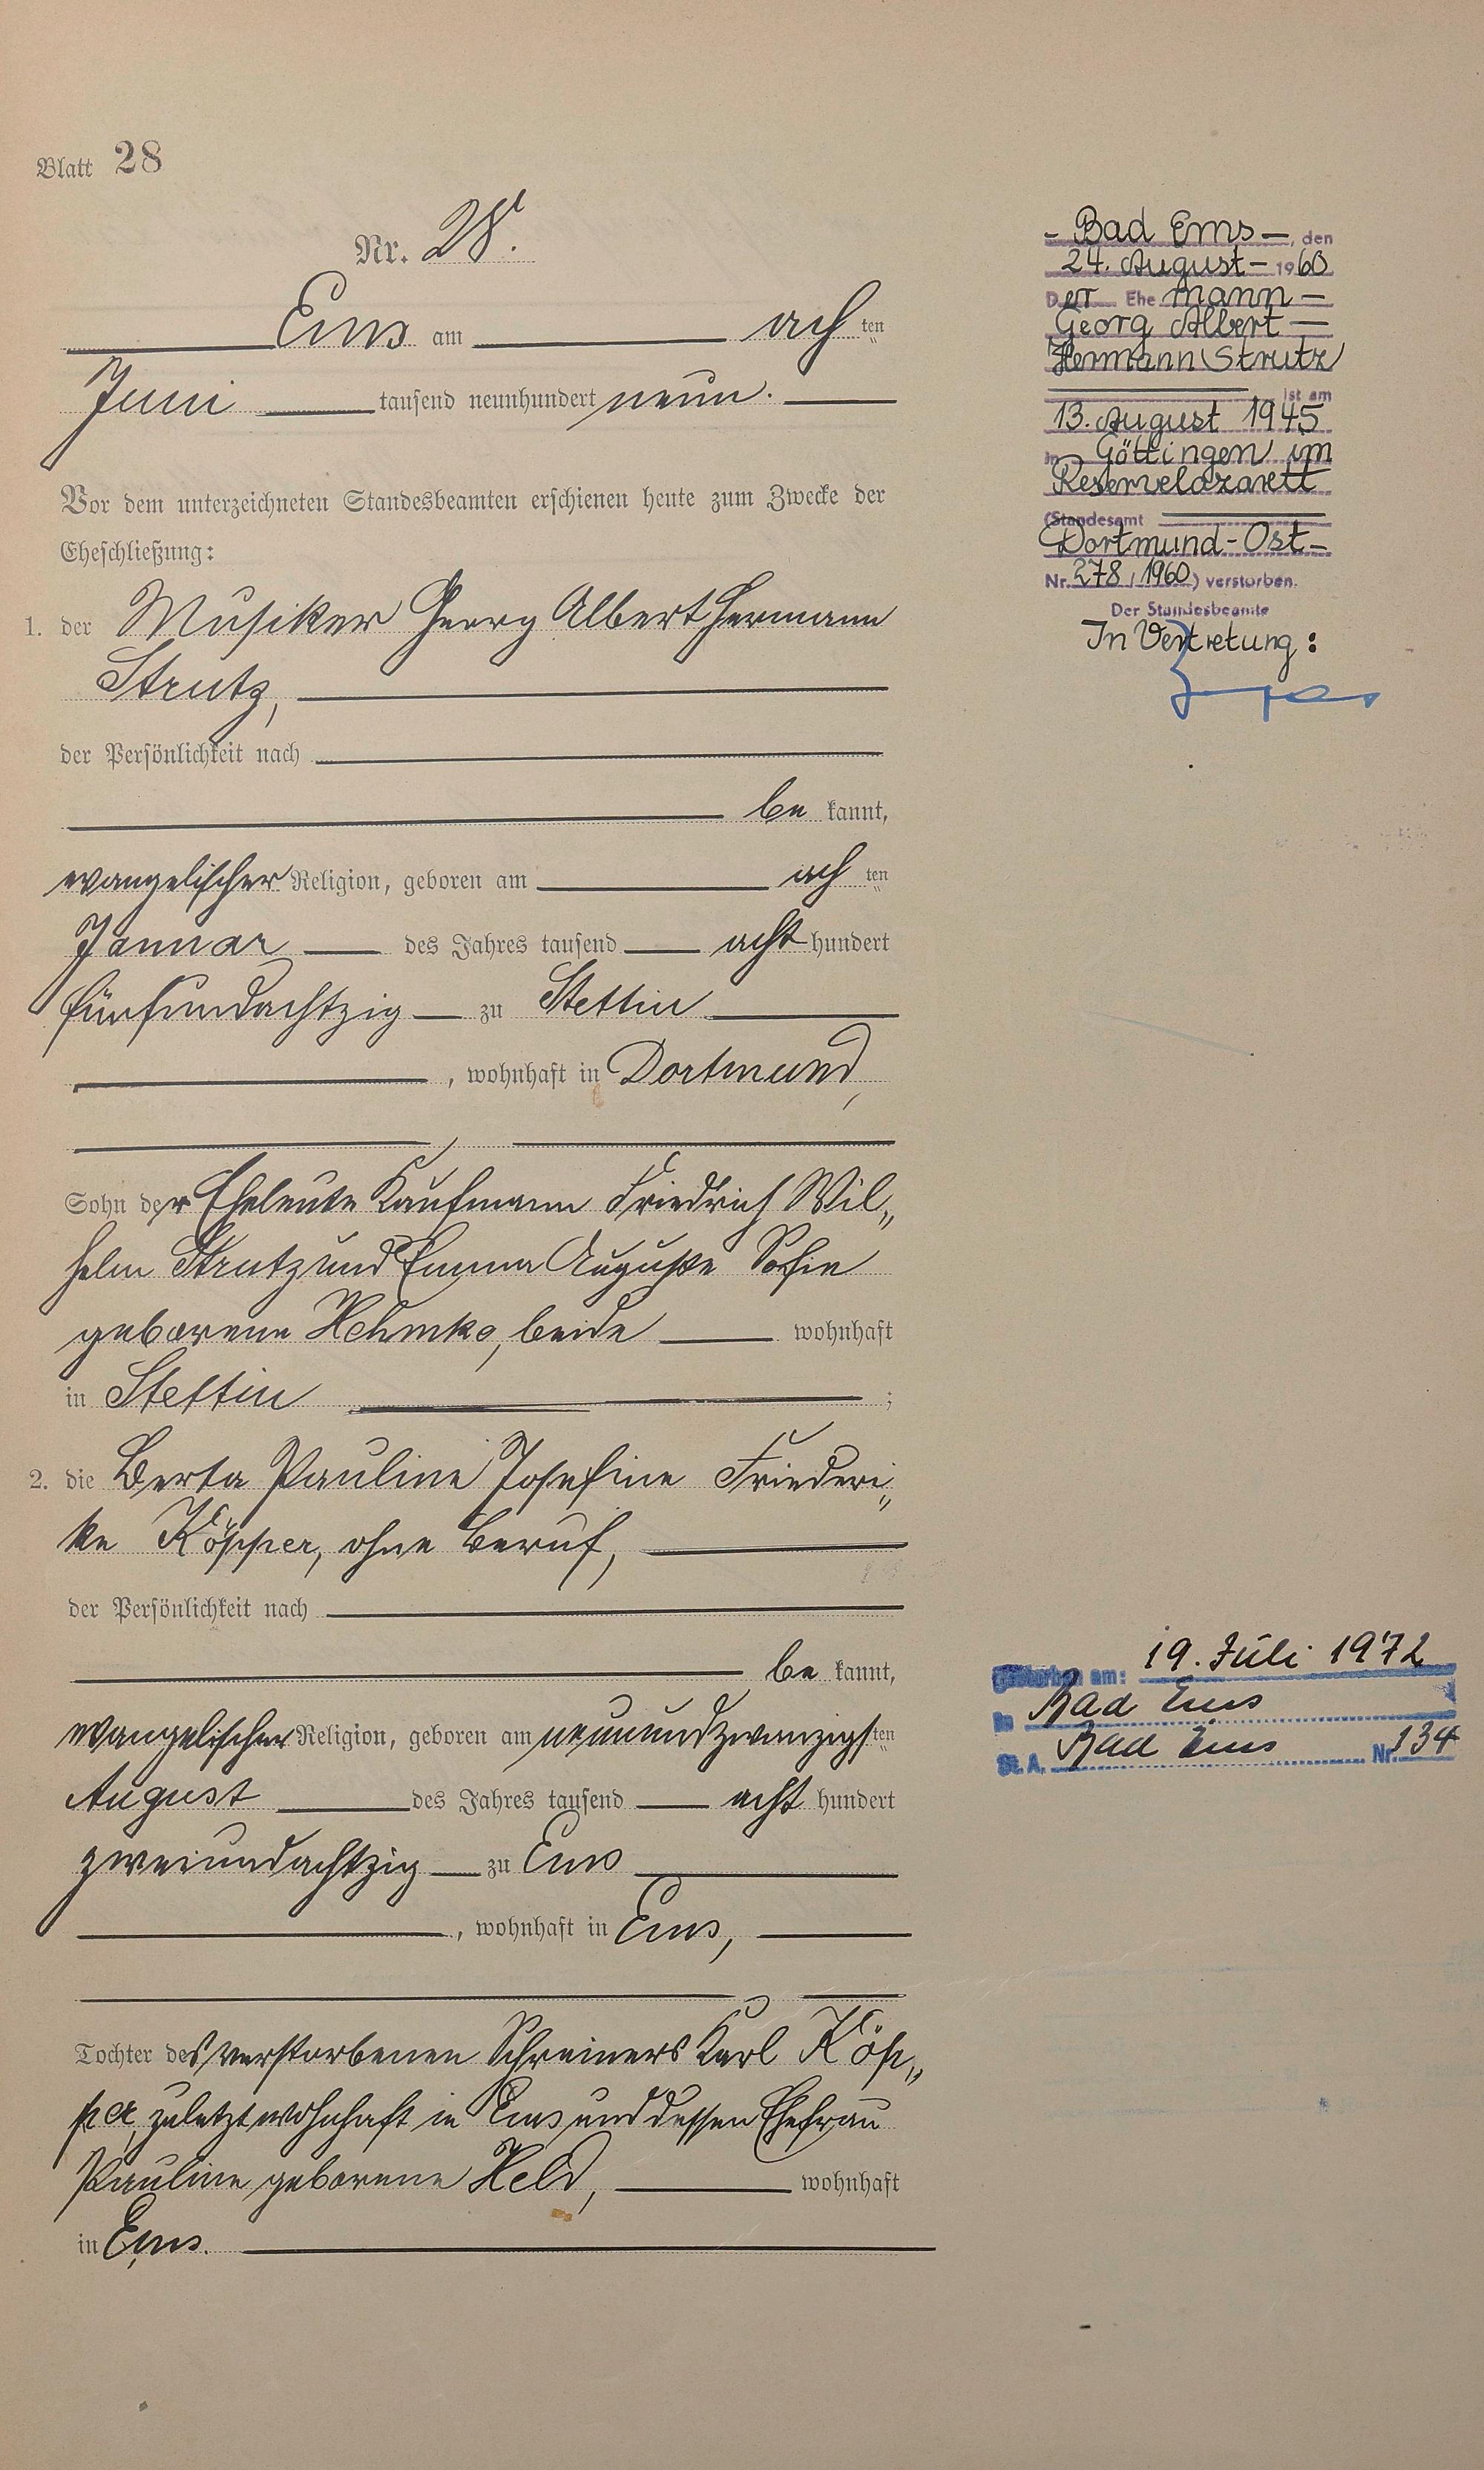 Blatt 28
Nr. 28.
Ems am ach ten
Juni tausend neunhundert neun.
Vor dem unterzeichneten Standesbeamten erschienen heute zum Zwecke der
Eheschließung:
1. der Musiker Georg Albert Hermann
Strutz,
der Persönlichkeit nach
be kannt,
evangelischer Religion, geboren am ach ten
Januar des Jahres tausend acht hundert
fünfundachtzig zu Stettin
, wohnhaft in Dortmund,
Sohn der Eheleute Kaufmann Friedrich Wil„
helm Strutz und Emma Auguste Sofie
geborene beide wohnhaft
in Stettin ;
2. die Berta Pauline Josefine Friederi„
ke Köpper, ohne Beruf,
der Persönlichkeit nach
be kannt,
evangelischer Religion, geboren am neunundzwanzigsten
August des Jahres tausend acht hundert
zweiundachtzig zu Ems
, wohnhaft in Ems,
Tochter des verstorbenen Schreiners Karl Köp„
per, zuletzt wohnhaft in Ems und dessen Ehefrau
Pauline geborene Held, wohnhaft
in Ems.
- Bad Ems -, den
24. August - 1960
Der Ehemann -
Georg Albert -
Hermann Strutz
ist am
13. August 1945
in Göttingen im
Reservelazarett
(Standesamt
Dortmund-Ost-
Nr. 278 / 1960) verstorben.
Der Standesbeamte
In Vertretung:
Gestorben am: 19. Juli 1972
in Bad Ems
St. A. Bad Ems Nr. 134